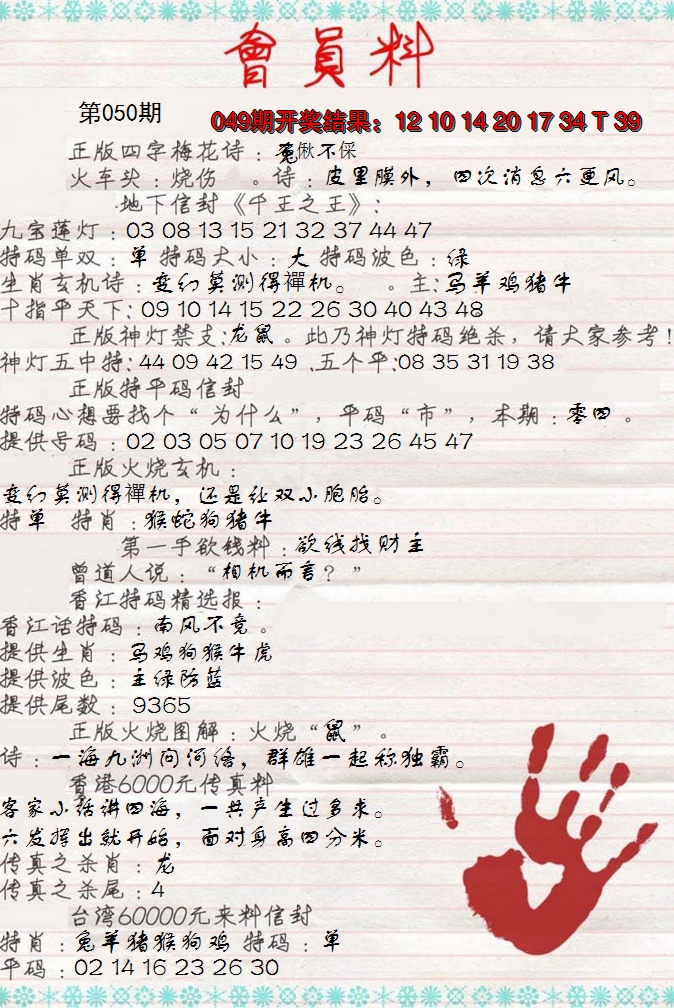 會員料
第050期
049期开奖结果：12 10 14 20 17 34 T 39
正版四字梅花诗：冤偢不倸
火车头：烧伤 。诗：皮里膜外，四次消息六更风。
地下信封《千王之王》：
九宝莲灯：03 08 13 15 21 32 37 44 47
特码单双：单 特码大小：大 特码波色：绿
生肖玄机诗：变幻莫测得禪机。 。主：马羊鸡猪牛
十指平天下：09 10 14 15 22 26 30 40 43 48
正版神灯禁支：龙鼠。此乃神灯特码绝杀，请大家参考！
神灯五中特：44 09 42 15 49 .五个平：08 35 31 19 38
正版特平码信封
特码心想要找个“为什么”，平码“市”，本期：零四。
提供号码：02 03 05 07 10 19 23 26 45 47
正版火烧玄机：
变幻莫测得禪机，还是让双小胞胎。
特单 特肖：猴蛇狗猪牛
第一手欲钱料：欲钱找财主
曾道人说：“相机而言？”
香江特码精选报：
香江话特码：南风不竞。
提供生肖：马鸡狗猴牛虎
提供波色：主绿防蓝
提供尾数：9365
正版火烧图解：火烧“鼠”。
诗：一海九洲问河络，群雄一起称独霸。
香港6000元传真料
客家小话讲四海，一共产生过多来。
六发挥出就开始，面对身高四分米。
传真之杀肖：龙
传真之杀尾：4
台湾60000元来料信封
特肖：兔羊猪猴狗鸡 特码：单
平码：02 14 16 23 26 30